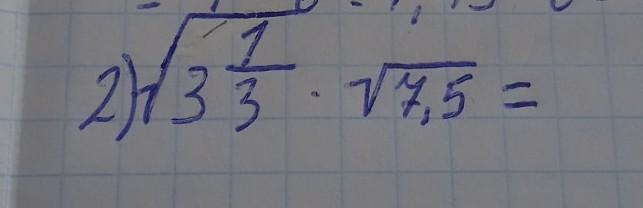 2) √(3 1/3) · √7,5 =